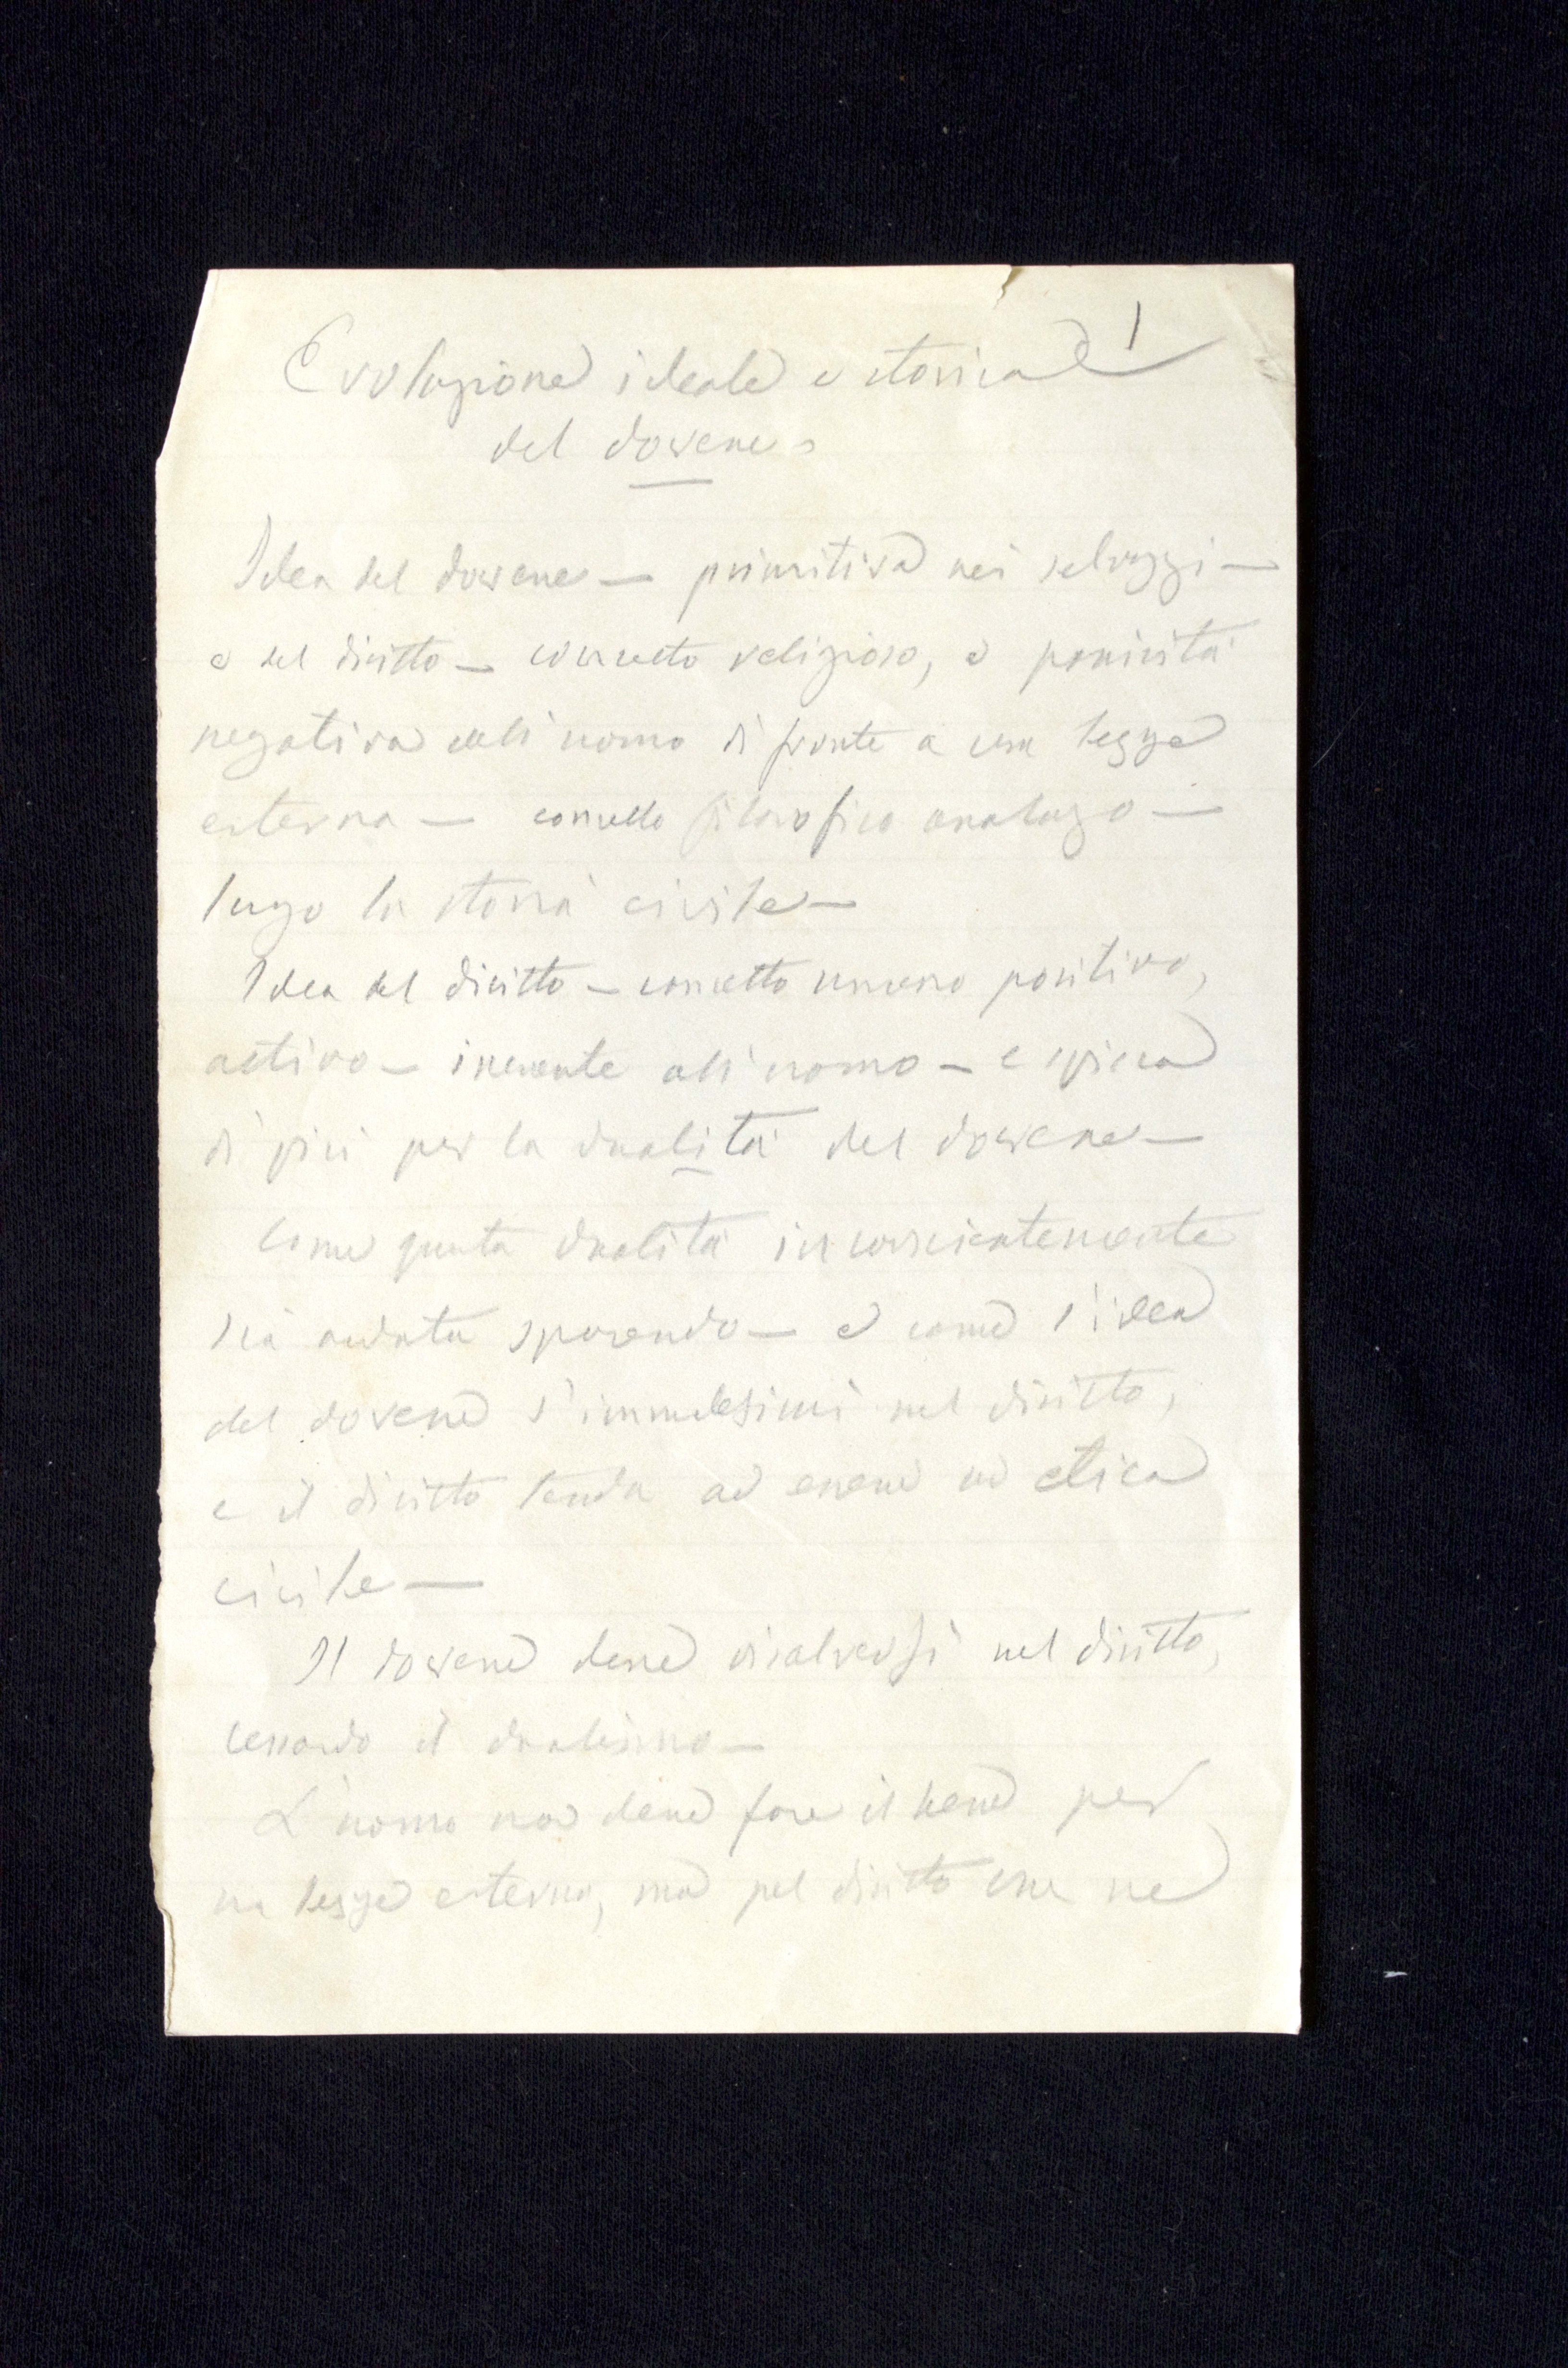 1
Evoluzione ideale e storica
del dovere
Idea del dovere — primitiva nei selvaggi —
e del diritto — concetto religioso, e
negativa all'uomo di fronte a una legge
esterna — concetto filosofico analogo —
lungo la storia civile —
Idea del diritto — concetto umano positivo,
attivo — inerente all'uomo — e spicca
di più per la dualità del dovere —
Come questa dualità inconscientemente
sia andata sparendo — e come l'idea
del dovere s'immedesimi nel diritto,
e il diritto tenda ad essere etica
civile —
Il dovere deve risolversi nel diritto,
cessando il dualismo —
L'uomo non deve fare il bene per
una legge esterna, ma pel diritto che ne